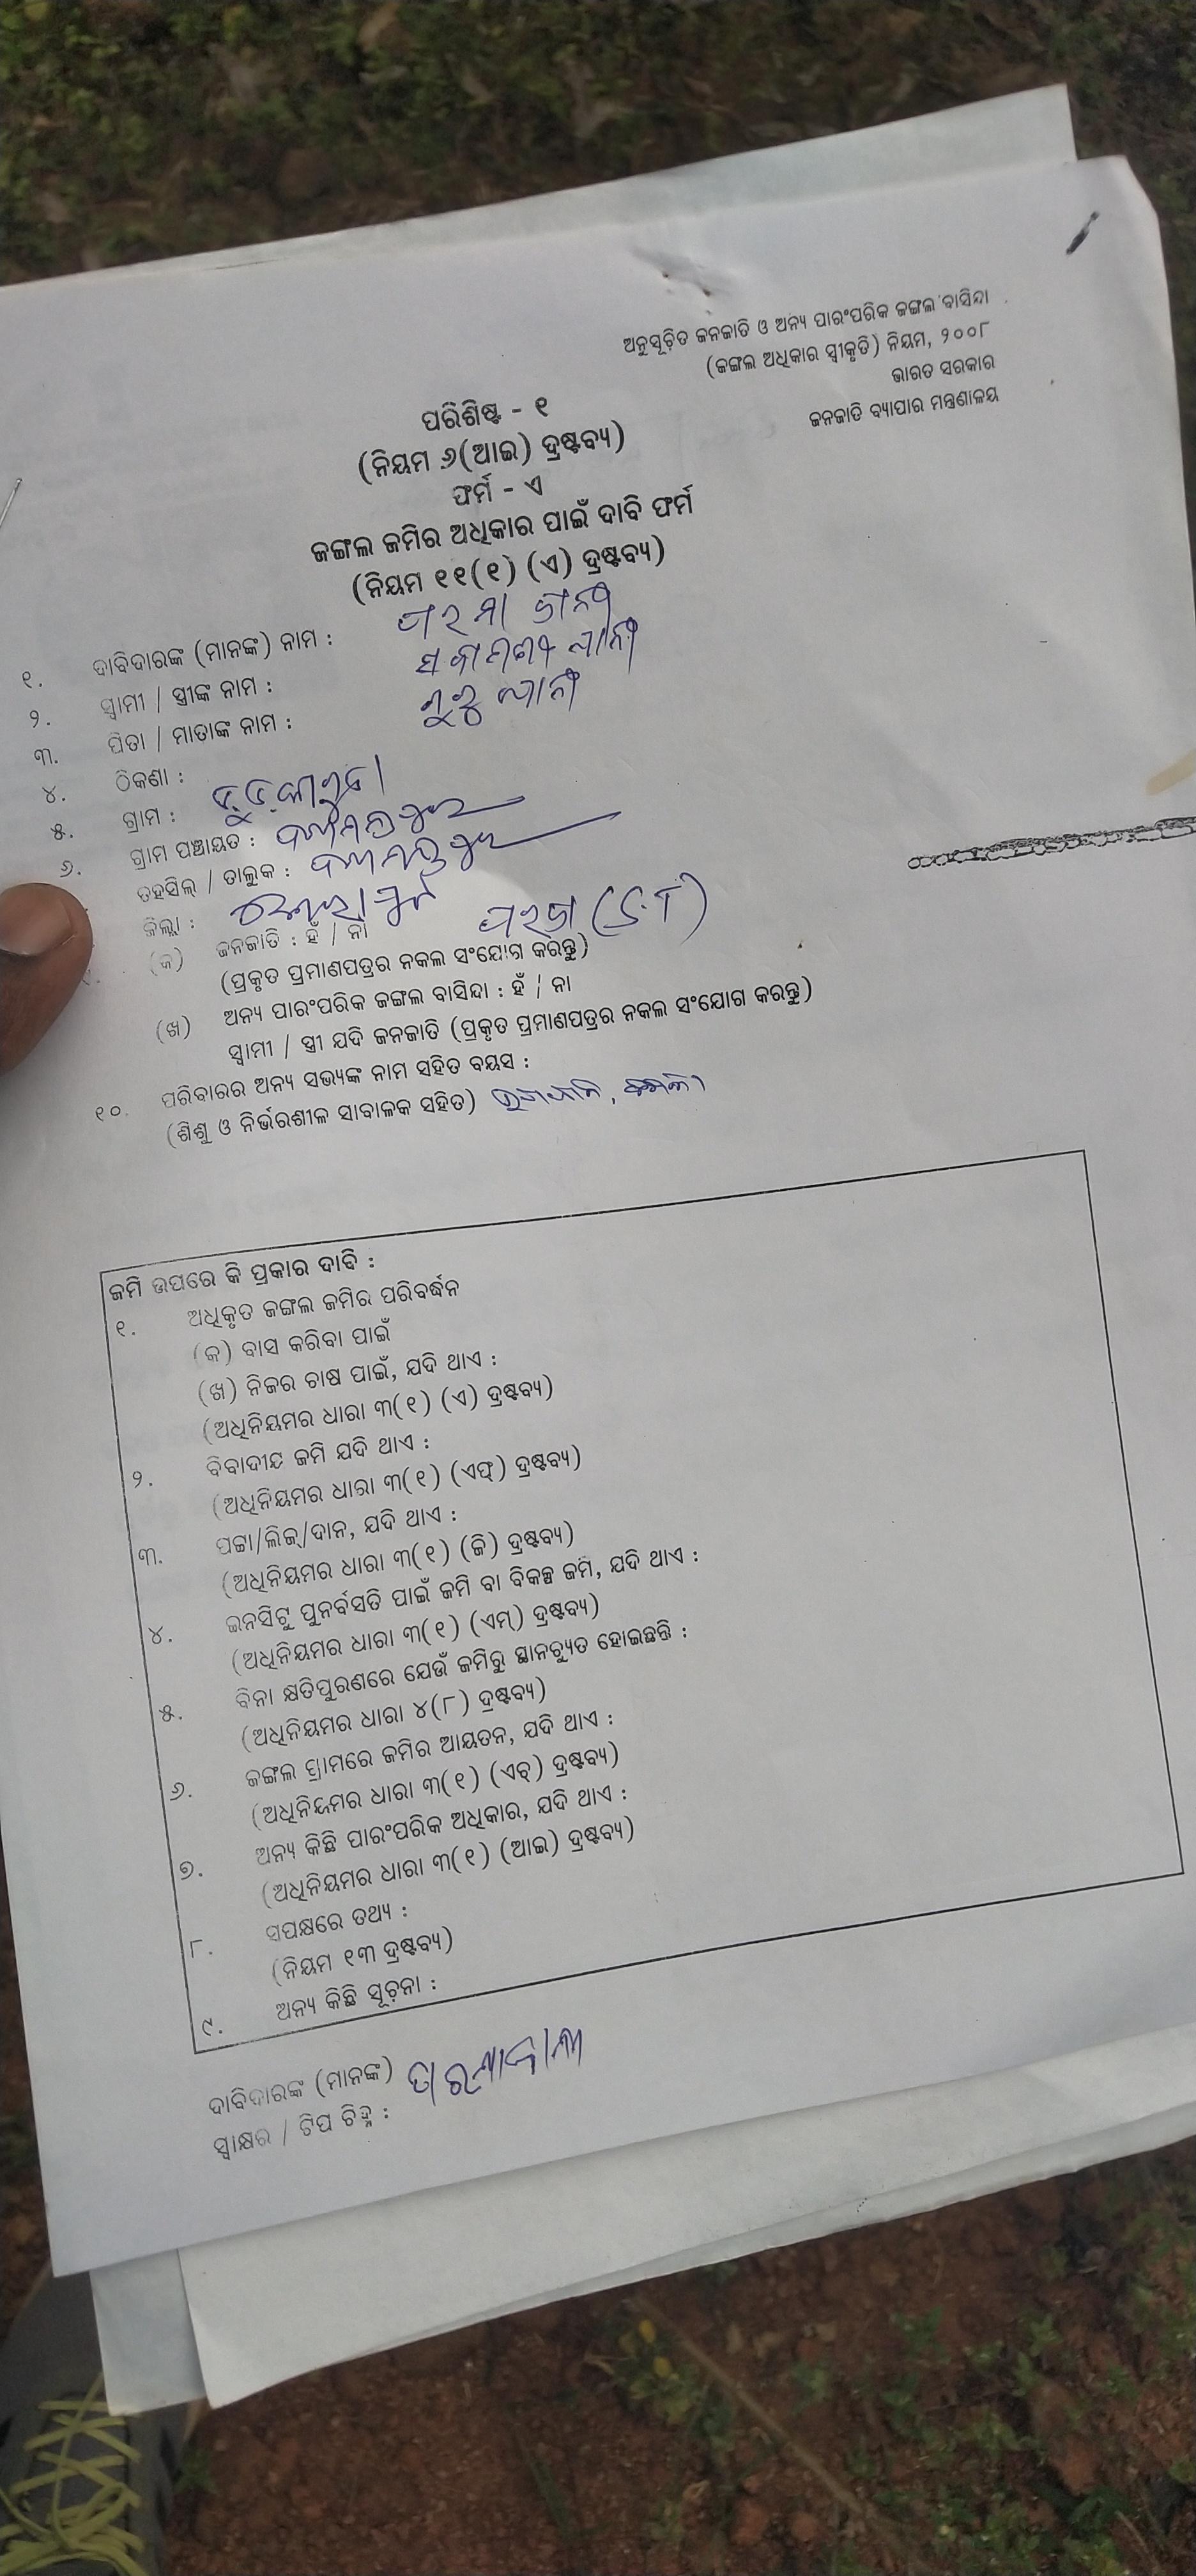 ଅନୁସୂଚିତ ଜନଜାତି ଓ ଅନ୍ୟ ପାରଂପରିକ ଜଙ୍ଗଲ ବାସିନ୍ଦା
(ଜଙ୍ଗଲ ଅଧିକାର ସ୍ୱୀକୃତି) ନିୟମ, ୨୦୦୮
ଭାରତ ସରକାର
ଜନଜାତି ବ୍ୟାପାର ମନ୍ତ୍ରଣାଳୟ
ପରିଶିଷ୍ଟ - ୧
(ନିୟମ ୬(ଆଇ) ଦ୍ରଷ୍ଟବ୍ୟ)
ଫର୍ମ - ଏ
ଜଙ୍ଗଲ ଜମିର ଅଧିକାର ପାଇଁ ଦାବି ଫର୍ମ
(ନିୟମ ୧୧(୧) (ଏ) ଦ୍ରଷ୍ଟବ୍ୟ)
୧. ଦାବିଦାରଙ୍କ (ମାନଙ୍କ) ନାମ :
୨. ସ୍ୱାମୀ / ସ୍ତ୍ରୀଙ୍କ ନାମ :
୩. ପିତା / ମାତାଙ୍କ ନାମ :
୪. ଠିକଣା :
୫. ଗ୍ରାମ :
୬. ଗ୍ରାମ ପଞ୍ଚାୟତ :
ତହସିଲ୍ / ତାଲୁକ :
ଜିଲ୍ଲା :
(କ) ଜନଜାତି : ହଁ / ନା ପରଜା (S.T)
(ପ୍ରକୃତ ପ୍ରମାଣପତ୍ରର ନକଲ ସଂଯୋଗ କରନ୍ତୁ)
(ଖ) ଅନ୍ୟ ପାରଂପରିକ ଜଙ୍ଗଲ ବାସିନ୍ଦା : ହଁ / ନା
ସ୍ୱାମୀ / ସ୍ତ୍ରୀ ଯଦି ଜନଜାତି (ପ୍ରକୃତ ପ୍ରମାଣପତ୍ରର ନକଲ ସଂଯୋଗ କରନ୍ତୁ)
୧୦. ପରିବାରର ଅନ୍ୟ ସଭ୍ୟଙ୍କ ନାମ ସହିତ ବୟସ :
(ଶିଶୁ ଓ ନିର୍ଭରଶୀଳ ସାବାଳକ ସହିତ)
ଜମି ଉପରେ କି ପ୍ରକାର ଦାବି :
୧. ଅଧିକୃତ ଜଙ୍ଗଲ ଜମିର ପରିବର୍ଦ୍ଧନ
(କ) ବାସ କରିବା ପାଇଁ
(ଖ) ନିଜର ଚାଷ ପାଇଁ, ଯଦି ଥାଏ :
(ଅଧିନିୟମର ଧାରା ୩(୧) (ଏ) ଦ୍ରଷ୍ଟବ୍ୟ)
୨. ବିବାଦୀୟ ଜମି ଯଦି ଥାଏ :
(ଅଧିନିୟମର ଧାରା ୩(୧) (ଏଫ୍) ଦ୍ରଷ୍ଟବ୍ୟ)
୩. ପଟ୍ଟା/ଲିଜ୍/ଦାନ, ଯଦି ଥାଏ :
(ଅଧିନିୟମର ଧାରା ୩(୧) (ଜି) ଦ୍ରଷ୍ଟବ୍ୟ)
୪. ଇନସିଟୁ ପୁନର୍ବସତି ପାଇଁ ଜମି ବା ବିକଳ୍ପ ଜମି, ଯଦି ଥାଏ :
(ଅଧିନିୟମର ଧାରା ୩(୧) (ଏମ୍) ଦ୍ରଷ୍ଟବ୍ୟ)
୫. ବିନା କ୍ଷତିପୁରଣରେ ଯେଉଁ ଜମିରୁ ସ୍ଥାନଚ୍ୟୁତ ହୋଇଛନ୍ତି :
(ଅଧିନିୟମର ଧାରା ୪(୮) ଦ୍ରଷ୍ଟବ୍ୟ)
୬. ଜଙ୍ଗଲ ଗ୍ରାମରେ ଜମିର ଆୟତନ, ଯଦି ଥାଏ :
(ଅଧିନିୟମର ଧାରା ୩(୧) (ଏଚ୍) ଦ୍ରଷ୍ଟବ୍ୟ)
୭. ଅନ୍ୟ କିଛି ପାରଂପରିକ ଅଧିକାର, ଯଦି ଥାଏ :
(ଅଧିନିୟମର ଧାରା ୩(୧) (ଆଇ) ଦ୍ରଷ୍ଟବ୍ୟ)
୮. ସପକ୍ଷରେ ତଥ୍ୟ :
(ନିୟମ ୧୩ ଦ୍ରଷ୍ଟବ୍ୟ)
୯. ଅନ୍ୟ କିଛି ସୂଚନା :
ଦାବିଦାରଙ୍କ (ମାନଙ୍କ)
ସ୍ୱାକ୍ଷର / ଟିପ ଚିହ୍ନ :